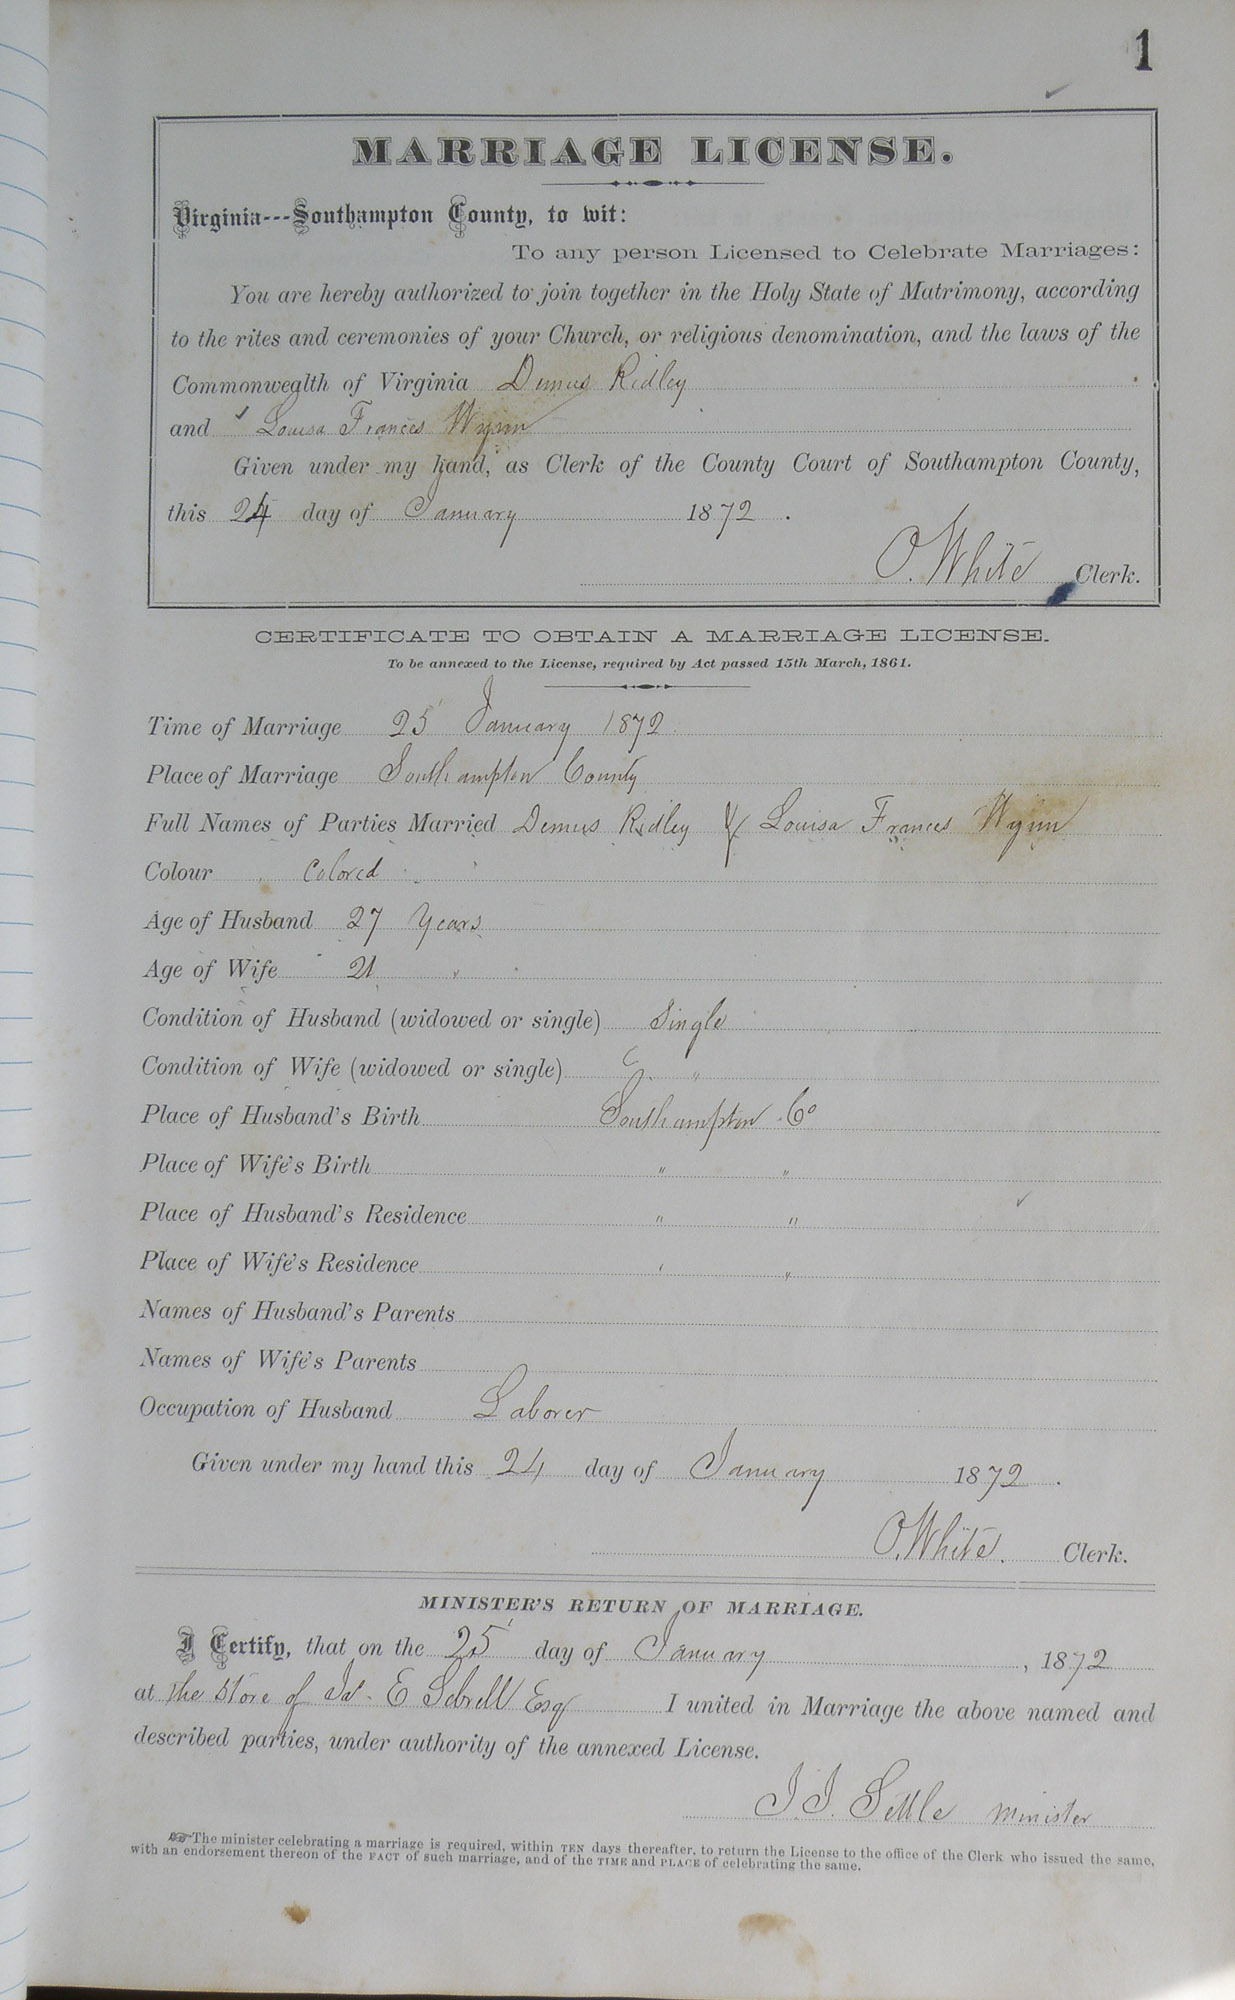 1
MARRIAGE LICENSE.
Virginia---Southampton County, to wit:
To any person Licensed to Celebrate Marriages:
You are hereby authorized to join together in the Holy State of Matrimony, according
to the rites and ceremonies of your Church, or religious denomination, and the laws of the
Commonweglth of Virginia Demus Ridley
and Louisa Frances Wynn
Given under my hand, as Clerk of the County Court of Southampton County,
this 24 day of January 1872.
O. White Clerk.
CERTIFICATE TO OBTAIN A MARRIAGE LICENSE.
To be annexed to the License, required by Act passed 15th March, 1861.
Time of Marriage 25 January 1872
Place of Marriage Southampton County
Full Names of Parties Married Demus Ridley & Louisa Frances Wynn
Colour Colored
Age of Husband 27 Years
Age of Wife 21 "
Condition of Husband (widowed or single) Single
Condition of Wife (widowed or single) "
Place of Husband's Birth Southampton Co
Place of Wife's Birth " "
Place of Husband's Residence " "
Place of Wife's Residence " "
Names of Husband's Parents
Names of Wife's Parents
Occupation of Husband Laborer
Given under my hand this 24 day of January 1872.
O. White. Clerk.
MINISTER'S RETURN OF MARRIAGE.
I Certify, that on the 25 day of January, 1872
at the Store of Jas. E Sebrell Esq I united in Marriage the above named and
described parties, under authority of the annexed License.
J. J. Settle minister
☞The minister celebrating a marriage is required, within TEN days thereafter, to return the License to the office of the Clerk who issued the same,
with an endorsement thereon of the FACT of such marriage, and of the TIME and PLACE of celebrating the same.